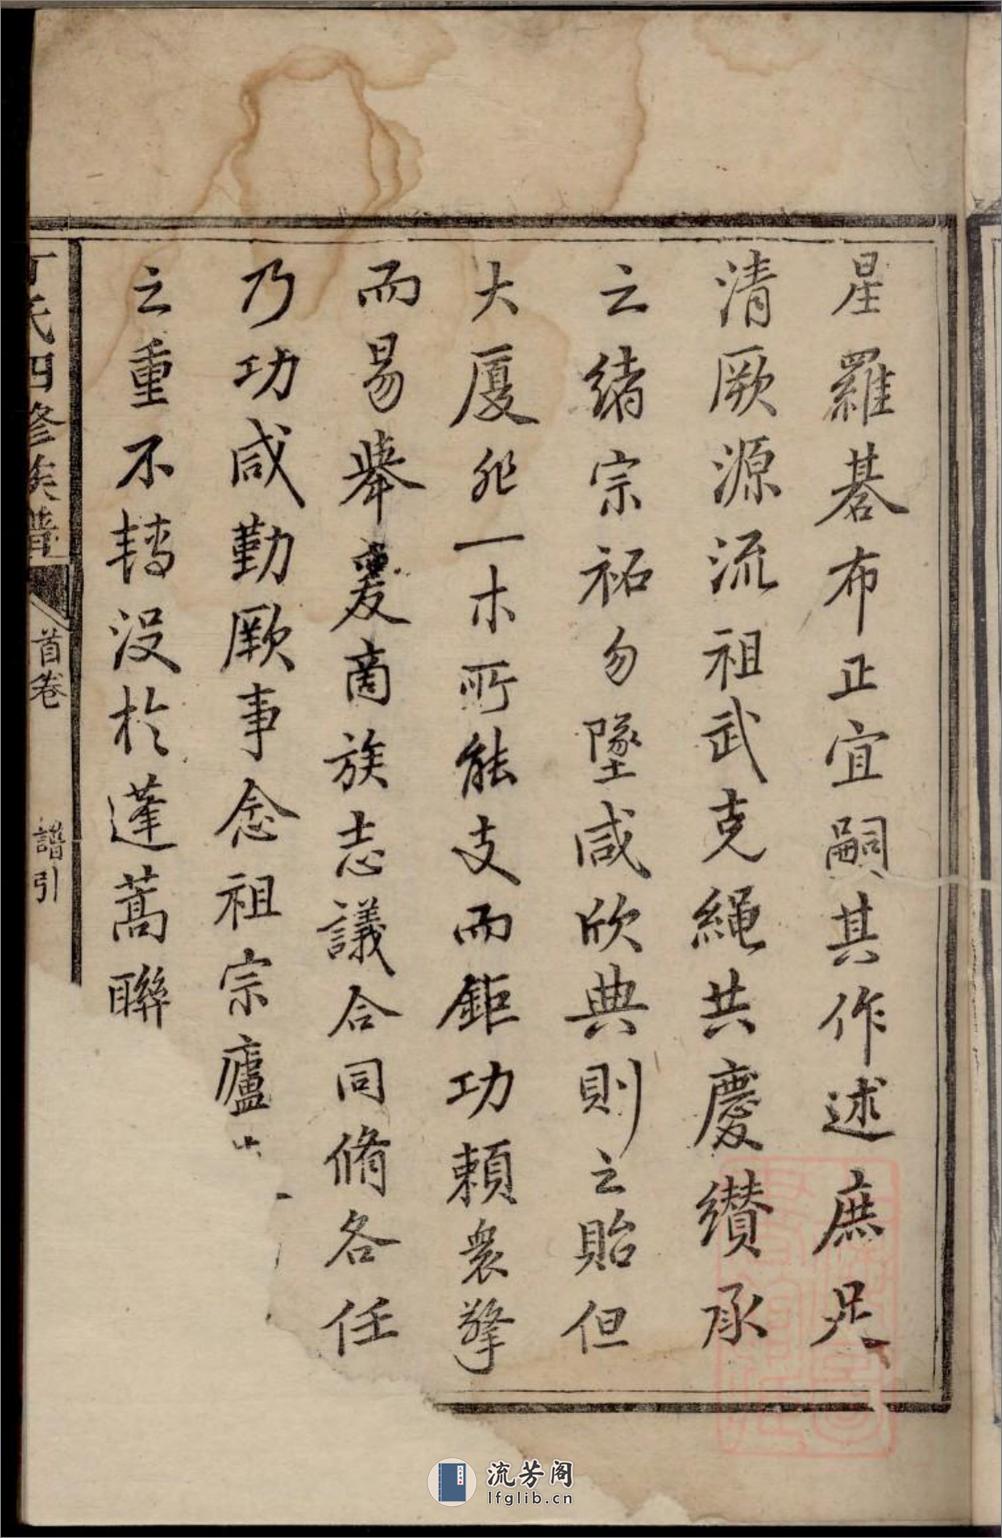 星羅碁布正宜嗣其作述庶足
清厥源流祖武克繩共慶纘承
之緒宗祏勿墜咸欣典則之貽但
大厦非一木所能支而鉅功頼衆擎
而易舉爰啇族志議合同脩各任
乃功咸勤厥事念祖宗廬
之重不轉没於蓬蒿聯
丁氏四修族譜
首卷
譜引
流芳阁
lfglib.cn